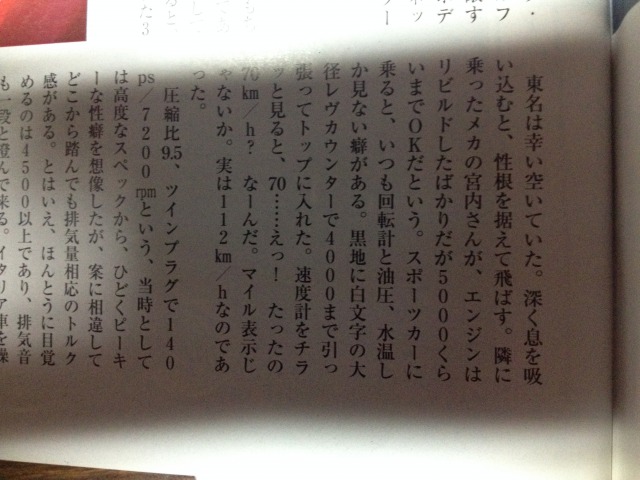 東名は幸い空いていた。深く息を吸
い込むと、性根を据えて飛ばす。隣に
乗ったメカの宮内さんが、エンジンは
リビルドしたばかりだが5000くら
いまでOKだという。スポーツカーに
乗ると、いつも回転計と油圧、水温し
か見ない癖がある。黒地に白文字の大
径レヴカウンターで4000まで引っ
張ってトップに入れた。速度計をチラ
ッと見ると、70……えっ！　たったの
70km/h?　なーんだ。マイル表示じ
ゃないか。実は112km/hなのであ
った。
圧縮比9.5、ツインプラグで140
ps/7200rpmという、当時として
は高度なスペックから、ひどくピーキ
ーな性癖を想像したが、案に相違して
どこから踏んでも排気量相応のトルク
感がある。とはいえ、ほんとうに目覚
めるのは4500以上であり、排気音
も一段と澄んで来る。イタリア車を操